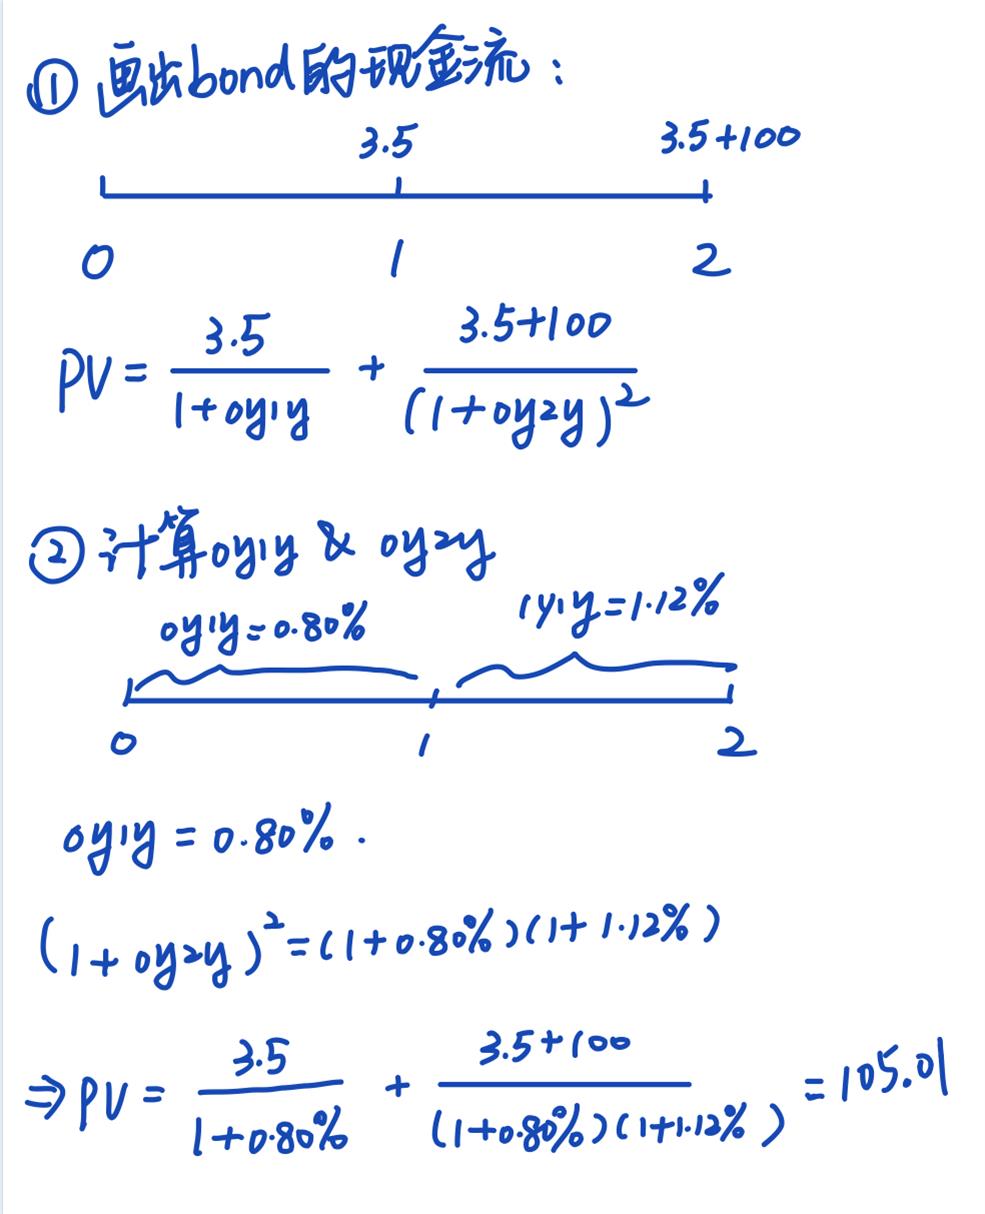 ① 画出bond的现金流：
3.5 3.5+100
0 1 2
PV = 3.5/(1+0y1y) + (3.5+100)/(1+0y2y)²
② 计算0y1y & 0y2y
0y1y=0.80% 1y1y=1.12%
0 1 2
0y1y = 0.80%.
(1+0y2y)²=(1+0.80%)(1+1.12%)
⇒ PV = 3.5/(1+0.80%) + (3.5+100)/((1+0.80%)(1+1.12%)) = 105.01